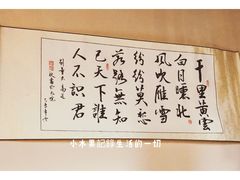 千里黄雲
白日曛北
風吹雁雪
紛紛莫愁
前路無知
己天下誰
人不識君
別董大 高適
小水果記錄生活的一切